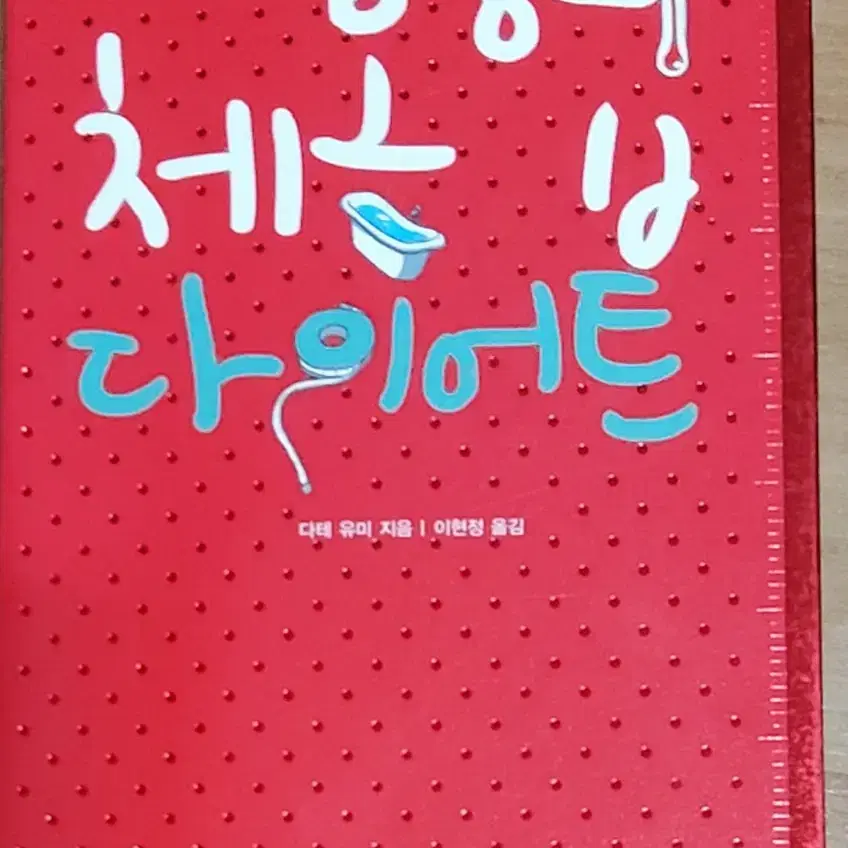 체온 업
다이어트
다테 유미 지음 | 이현정 옮김